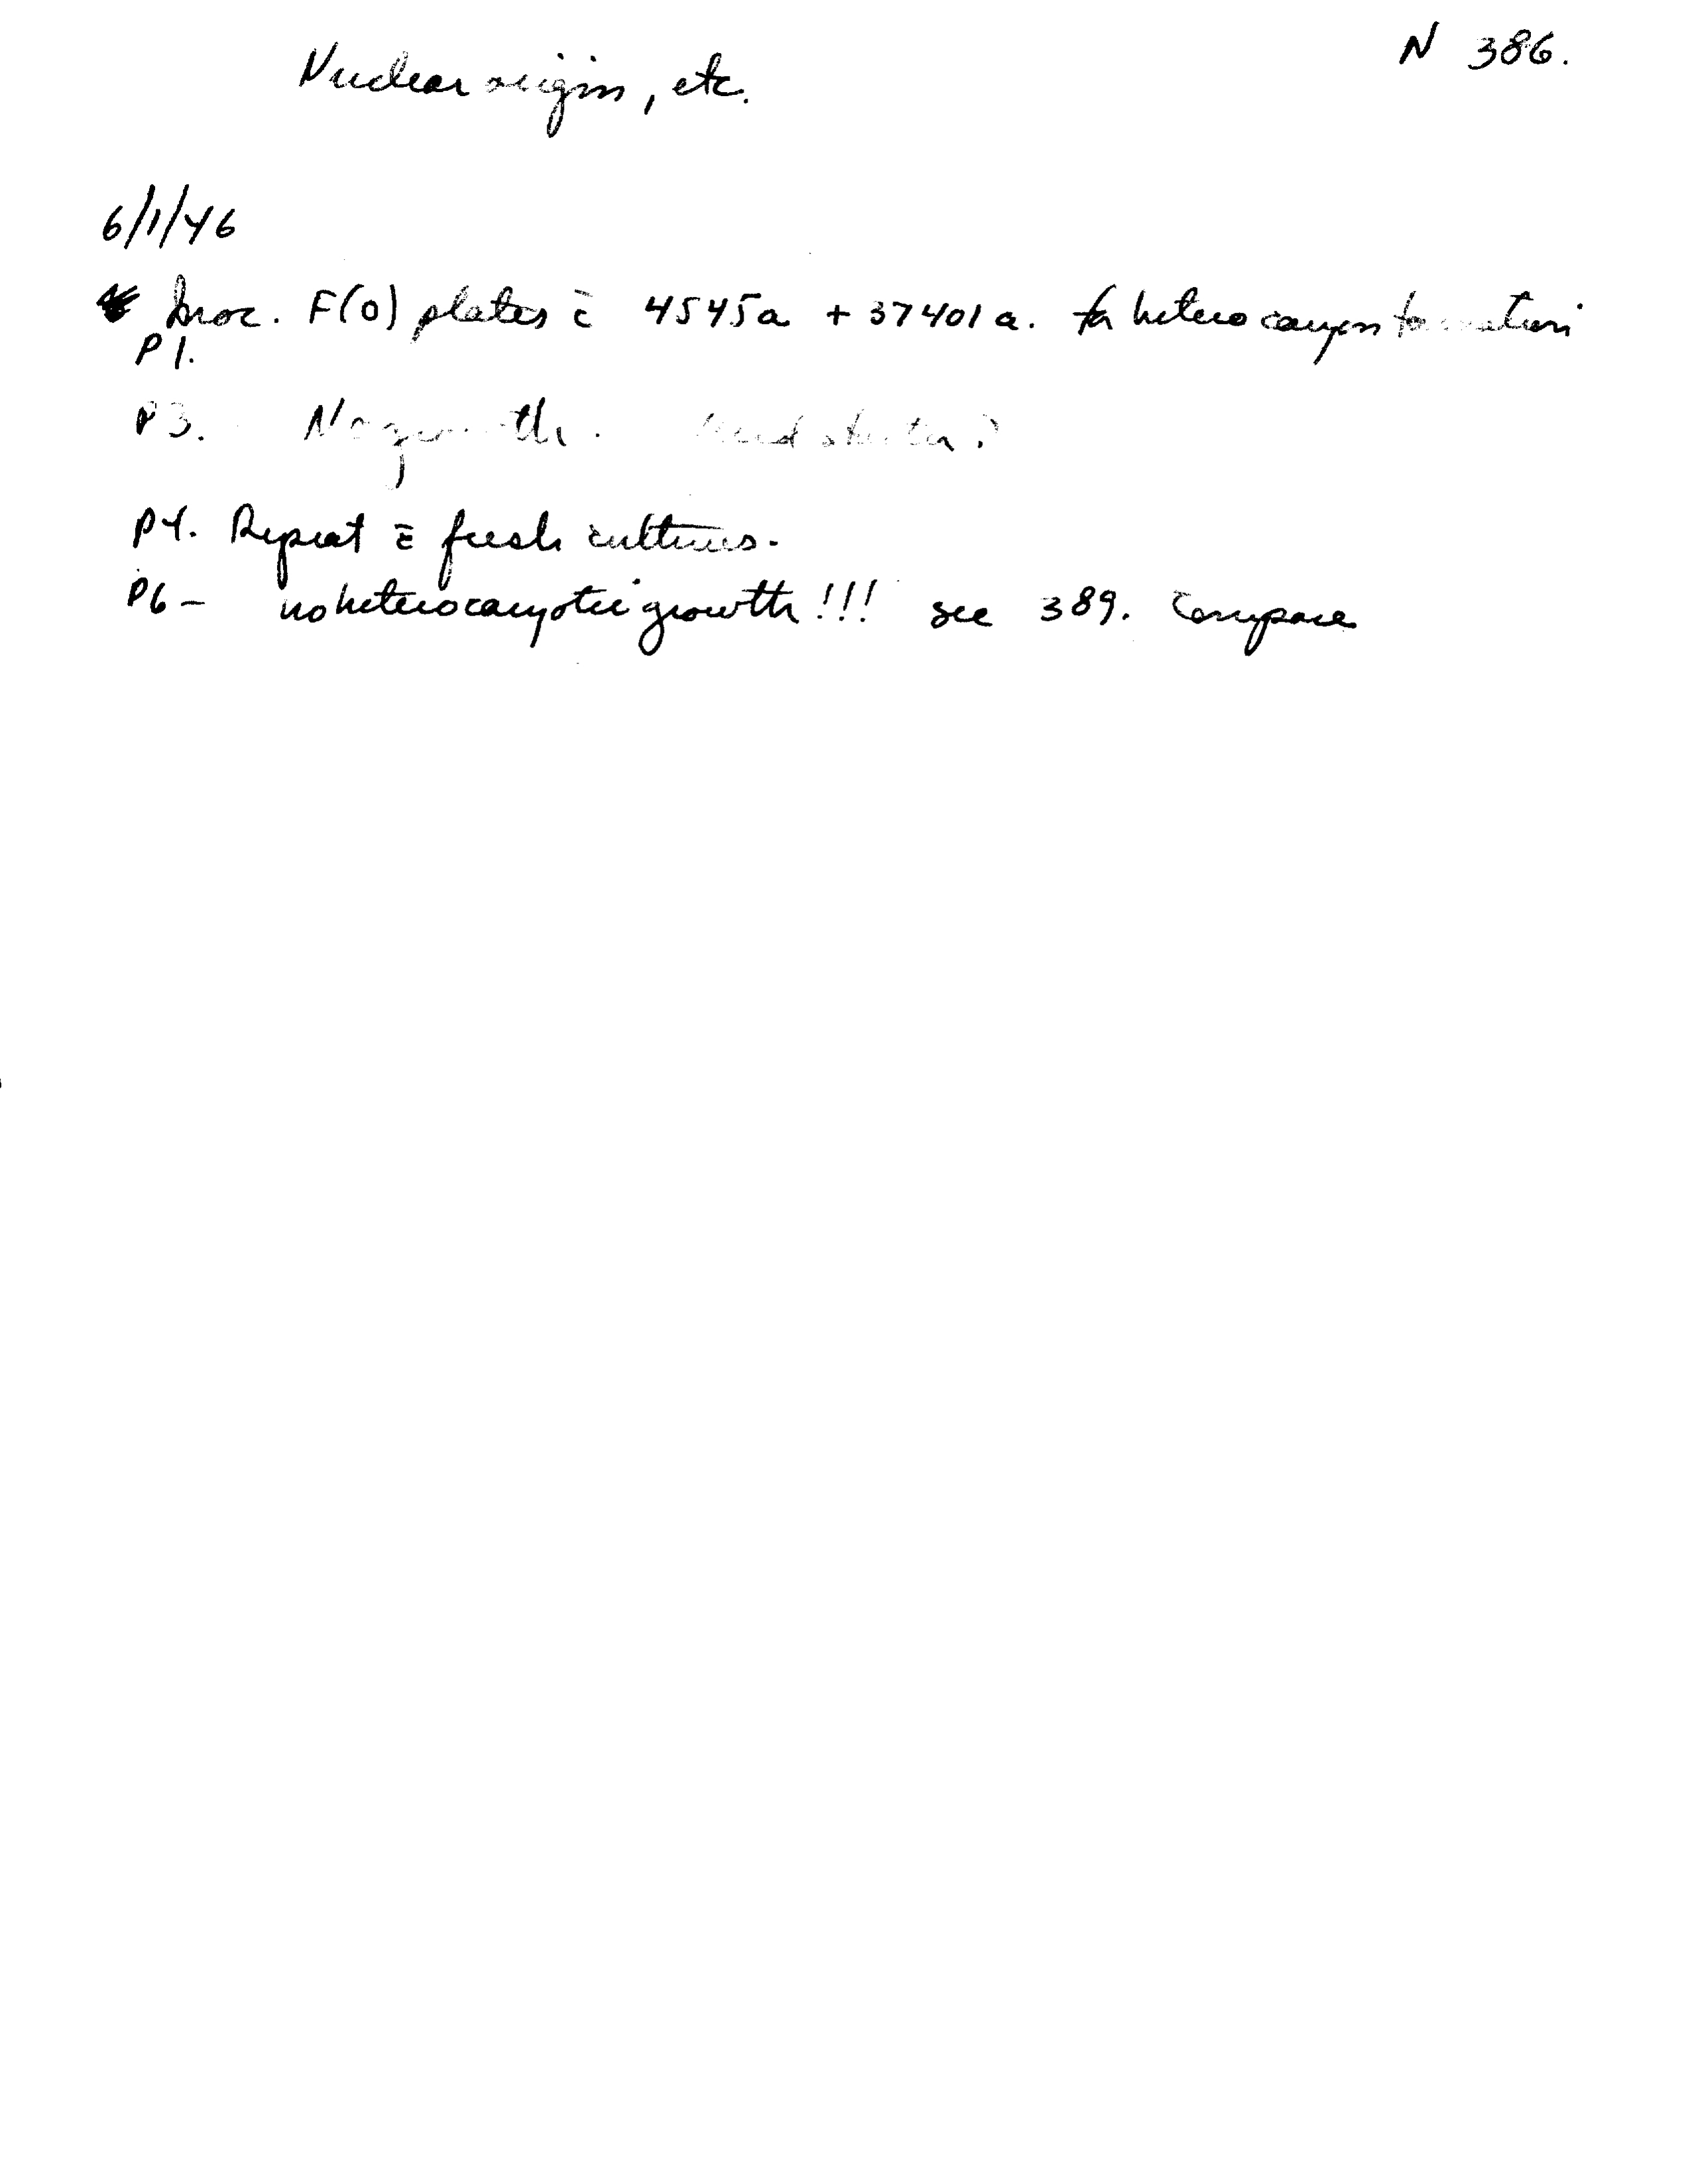 N 386.
Nuclear origin, etc.
6/1/46
Inoc. F(0) plates c̄ 4545a + 37401a. for heterocaryon formation
P1.
P3. No growth.
P4. Repeat c̄ fresh cultures.
P6 - no heterocaryotic growth!!! see 389. Compare